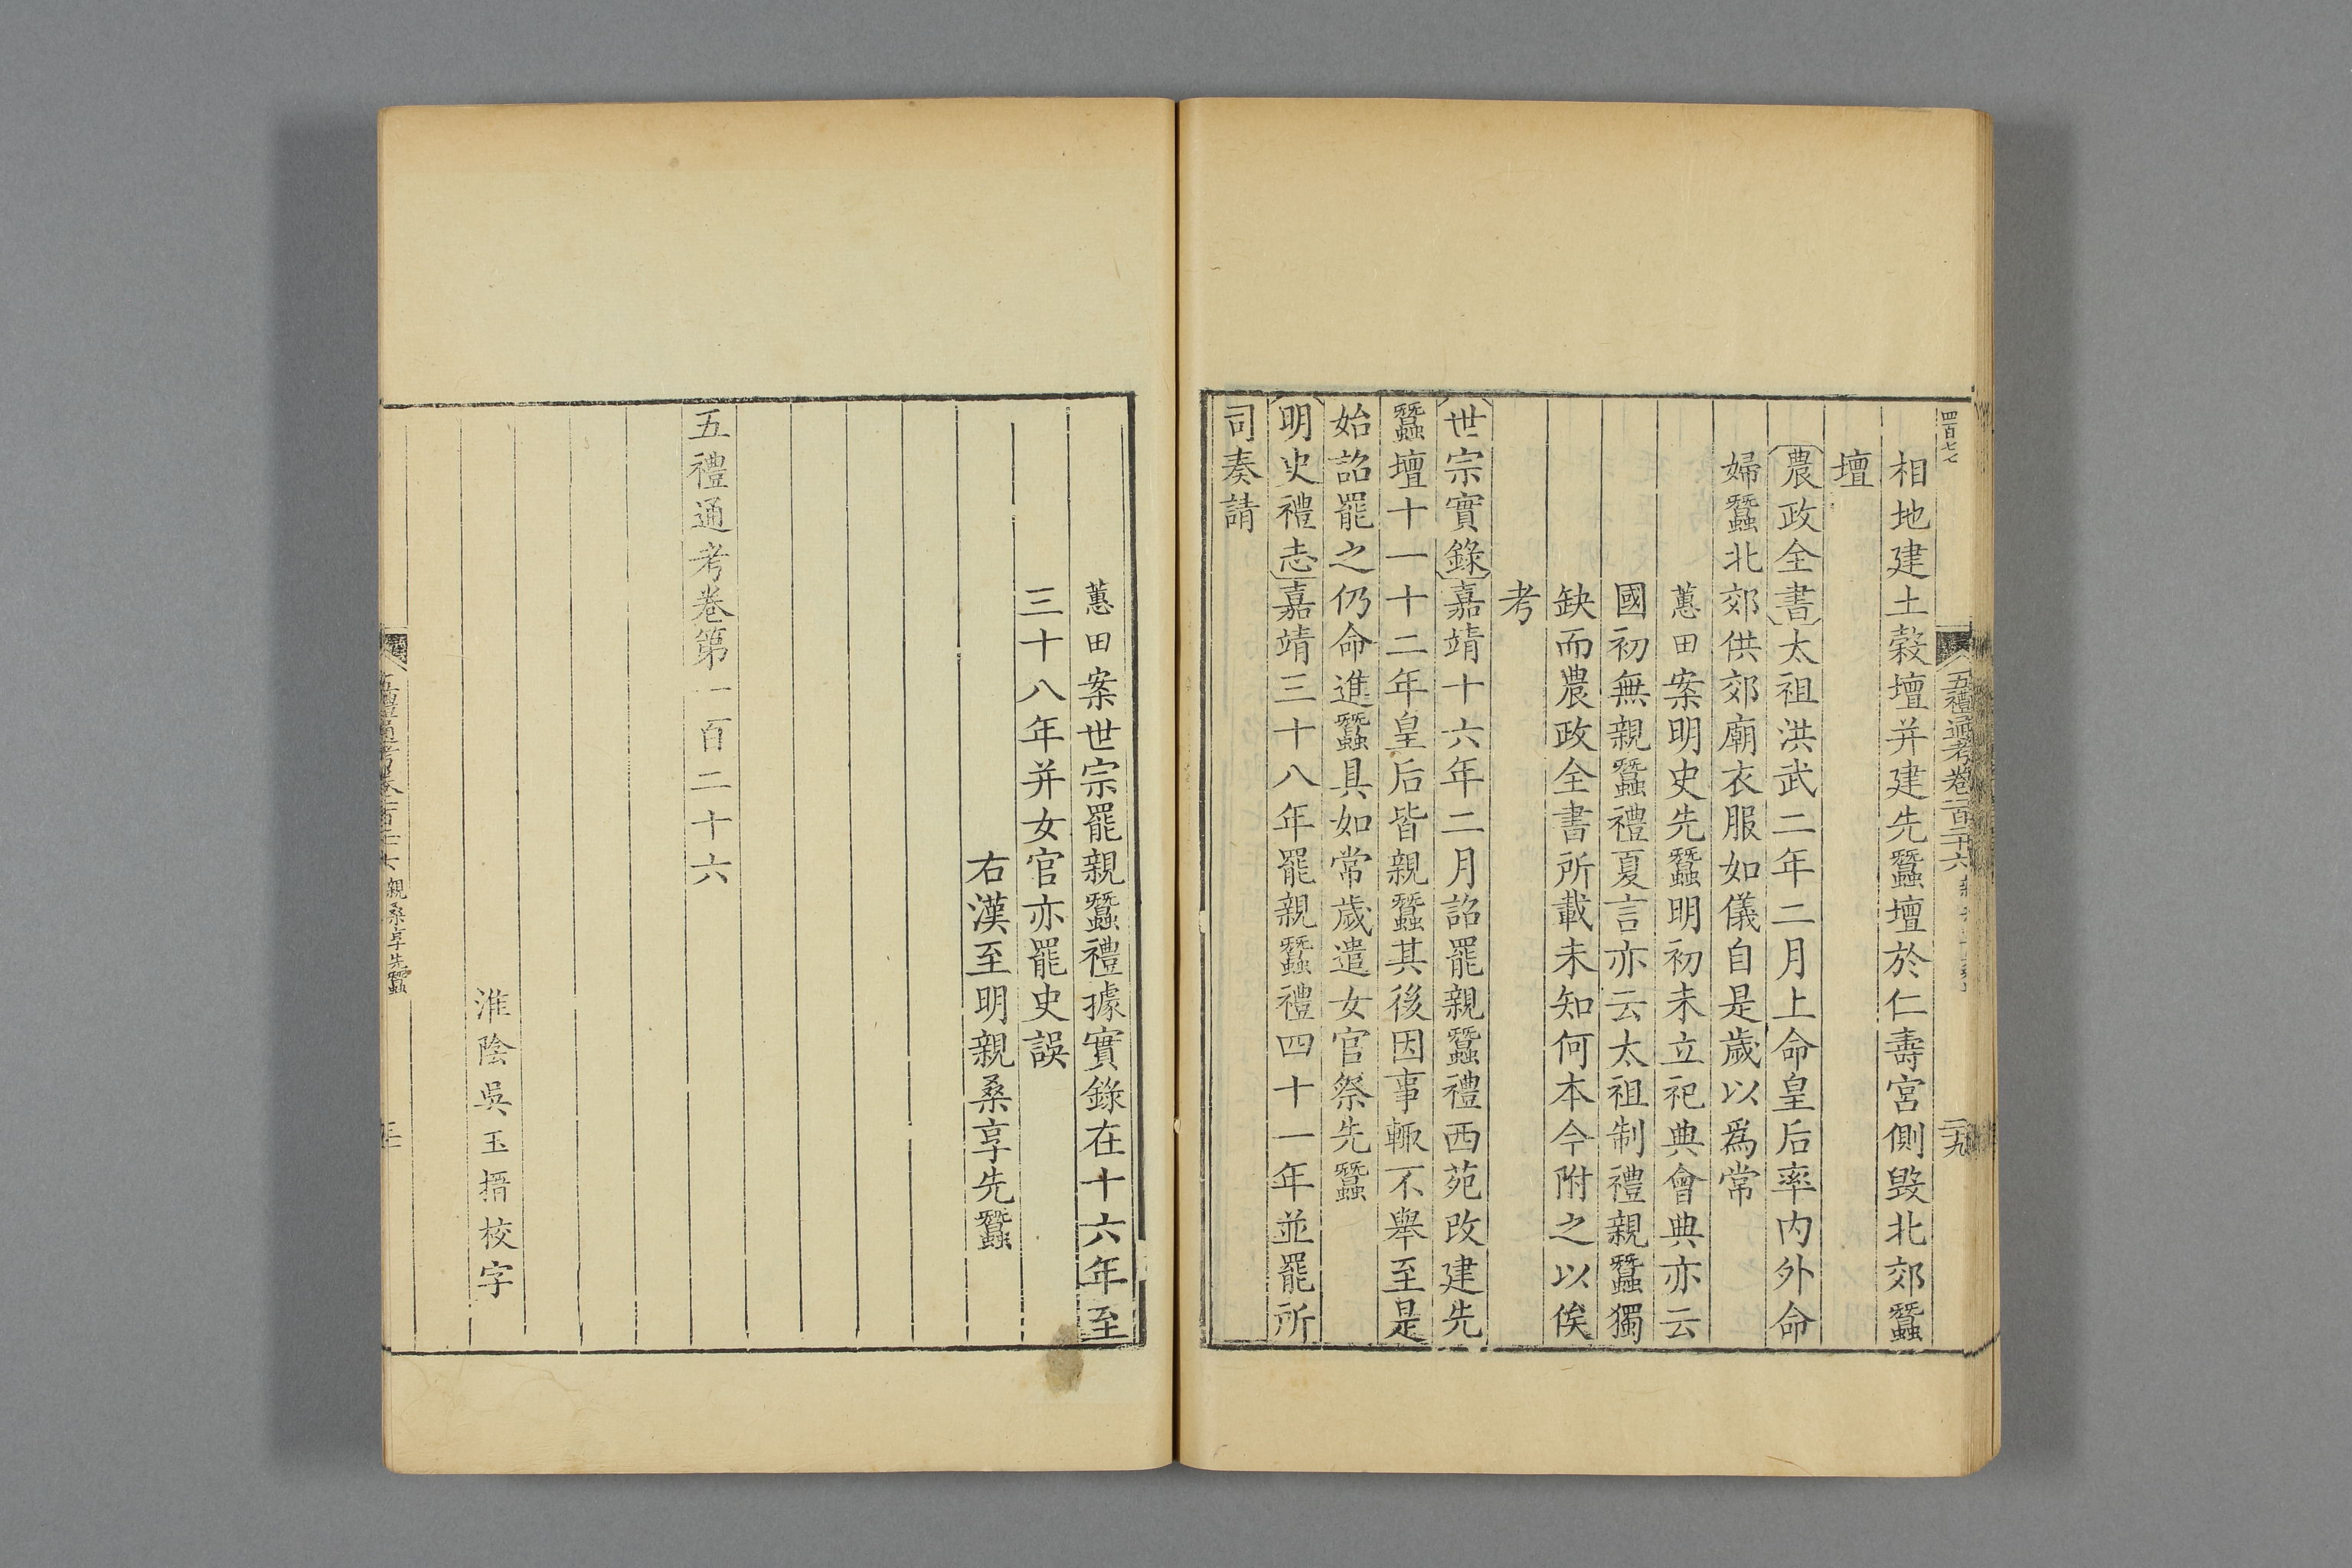 四百七七
五禮通考卷一百二十六
二九
相地建土穀壇并建先蠶壇於仁壽宮側毀北郊蠶
壇
農政全書太祖洪武二年二月上命皇后率内外命
婦蠶北郊供郊廟衣服如儀自是歲以爲常
蕙田案明史先蠶明初未立祀典會典亦云
國初無親蠶禮夏言亦云太祖制禮親蠶獨
缺而農政全書所載未知何本今附之以俟
考
世宗實錄嘉靖十六年二月詔罷親蠶禮西苑改建先
蠶壇十一十二年皇后皆親蠶其後因事輙不舉至是
始詔罷之仍命進蠶具如常歲遣女官祭先蠶
明史禮志嘉靖三十八年罷親蠶禮四十一年並罷所
司奏請
蕙田案世宗罷親蠶禮據實錄在十六年至
三十八年并女官亦罷史誤
右漢至明親桑享先蠶
五禮通考卷第一百二十六
淮陰吳玉搢校字
五禮通考卷一百二十六 親桑享先蠶